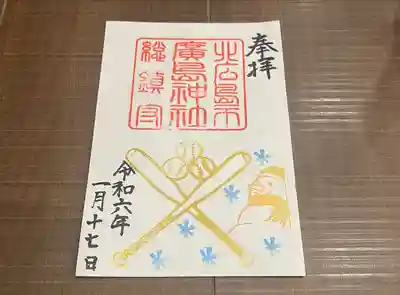 奉拝
北広島市
廣島神社
総鎮守
令和六年
一月十七日